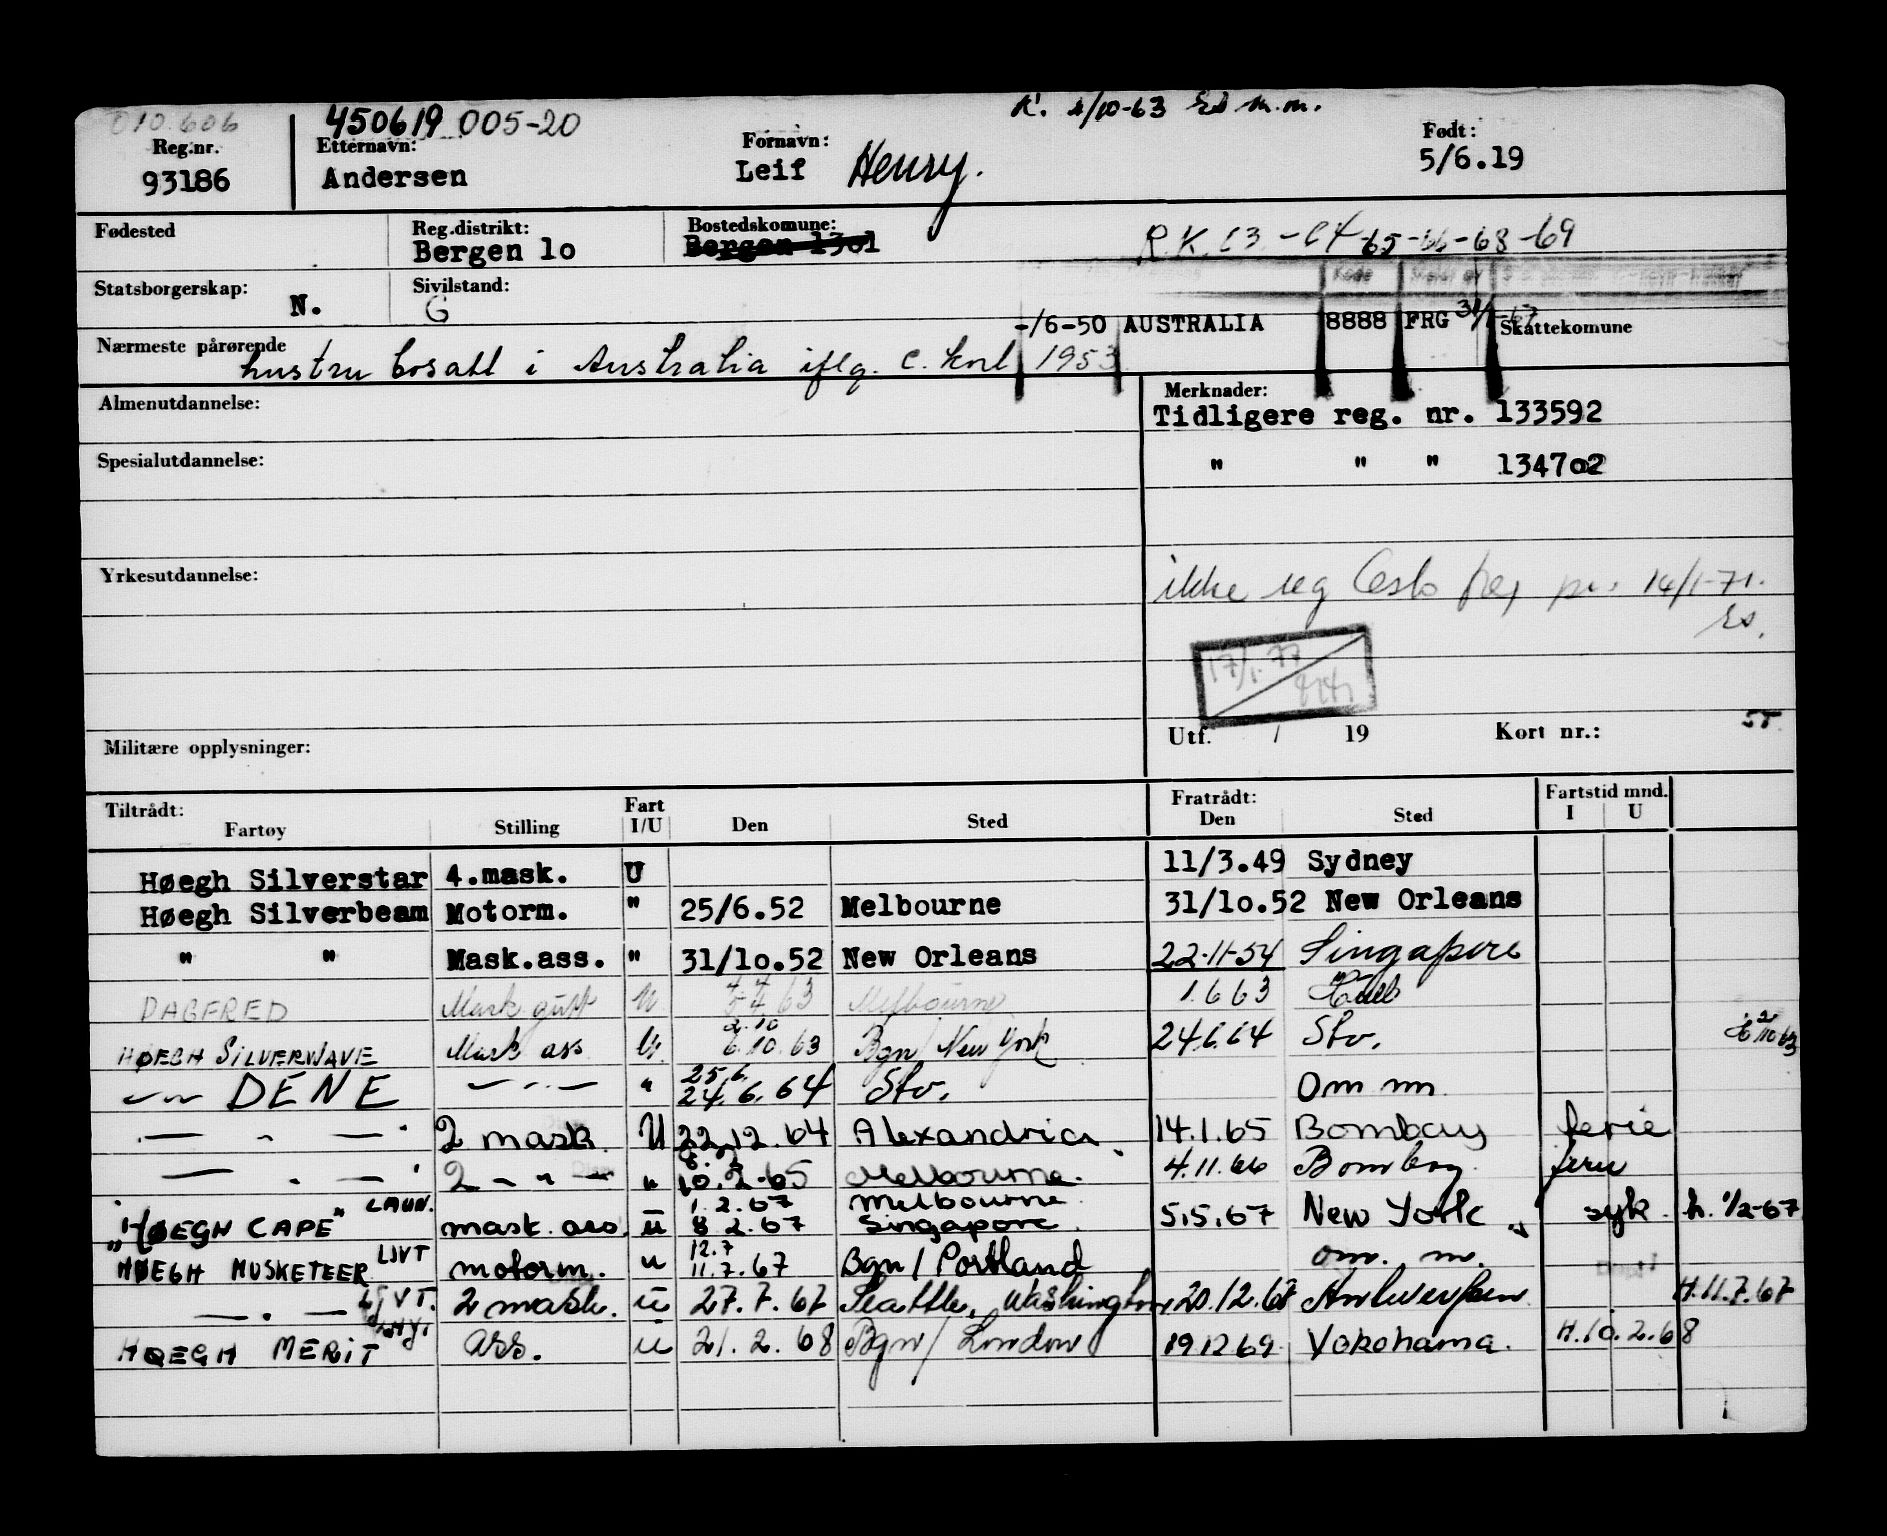 010.606 450619 005-20 K. 2/10-63 m.m.
Reg.nr. Etternavn: Fornavn: Født:
93186 Andersen Leif Henry. 5/6.19
Fødested Reg.distrikt: Bostedskomune:
Bergen 1o Bergen 13o1 R.K. 63-64-65-66-68-69
Statsborgerskap: N. Sivilstand: G
-/6-50 AUSTRALIA 8888 FRG Skattekomune
Nærmeste pårørende
hustru bosatt i Australia iflg. C. kort 1953
Almenutdannelse: Merknader:
Tidligere reg. nr. 133592
Spesialutdannelse: " " " 134702
Yrkesutdannelse: ikke reg Oslo 14/1-71.
17/1.77
Militære opplysninger: Utf. / 19 Kort nr.:
Tiltrådt: Fart Fratrådt: Fartstid mnd.
Fartøy Stilling I/U Den Sted Den Sted I U
Høegh Silverstar 4.mask. U 11/3.49 Sydney
Høegh Silverbeam Motorm. " 25/6.52 Melbourne 31/1o.52 New Orleans
" " Mask.ass. " 31/1o.52 New Orleans 22-11-54 Singapore
DAGFRED Mask gutt U 4.63 Melbourne 1.6 63
HØEGH SILVERWAVE Mask ass U. 2.10 6.10.63 Bgn/ New York 24.6.64 Stv. 2/10 63
— " — DENE — " — " 25.6. 24.6.64 Stv. Om m
— " — 2 mask. U 22.12.64 Alexandria 14.1.65 Bombay ferie
— " — 2 — " — " 8.2 10.2-65 Melbourne. 4.11.66 Bombay ferie
"HØEGH CAPE" LAUR. mask. ass. u 1.2.67 8.2.67 Melbourne Singapore. 5.5.67 New York syk. h. 1/2-67
HØEGH MUSKETEER LIVT motorm. u 12.7 11.7.67 Bgn/ Portland om. m.
— " — 2 mask. u 27.7.67 Seattle, Washington 20.12.67 Antwerpen H.11.7.67
HØEGH MERIT ass. u 21.2.68 Bgn/ London 19 12 69 Yokohama. H.10.2.68